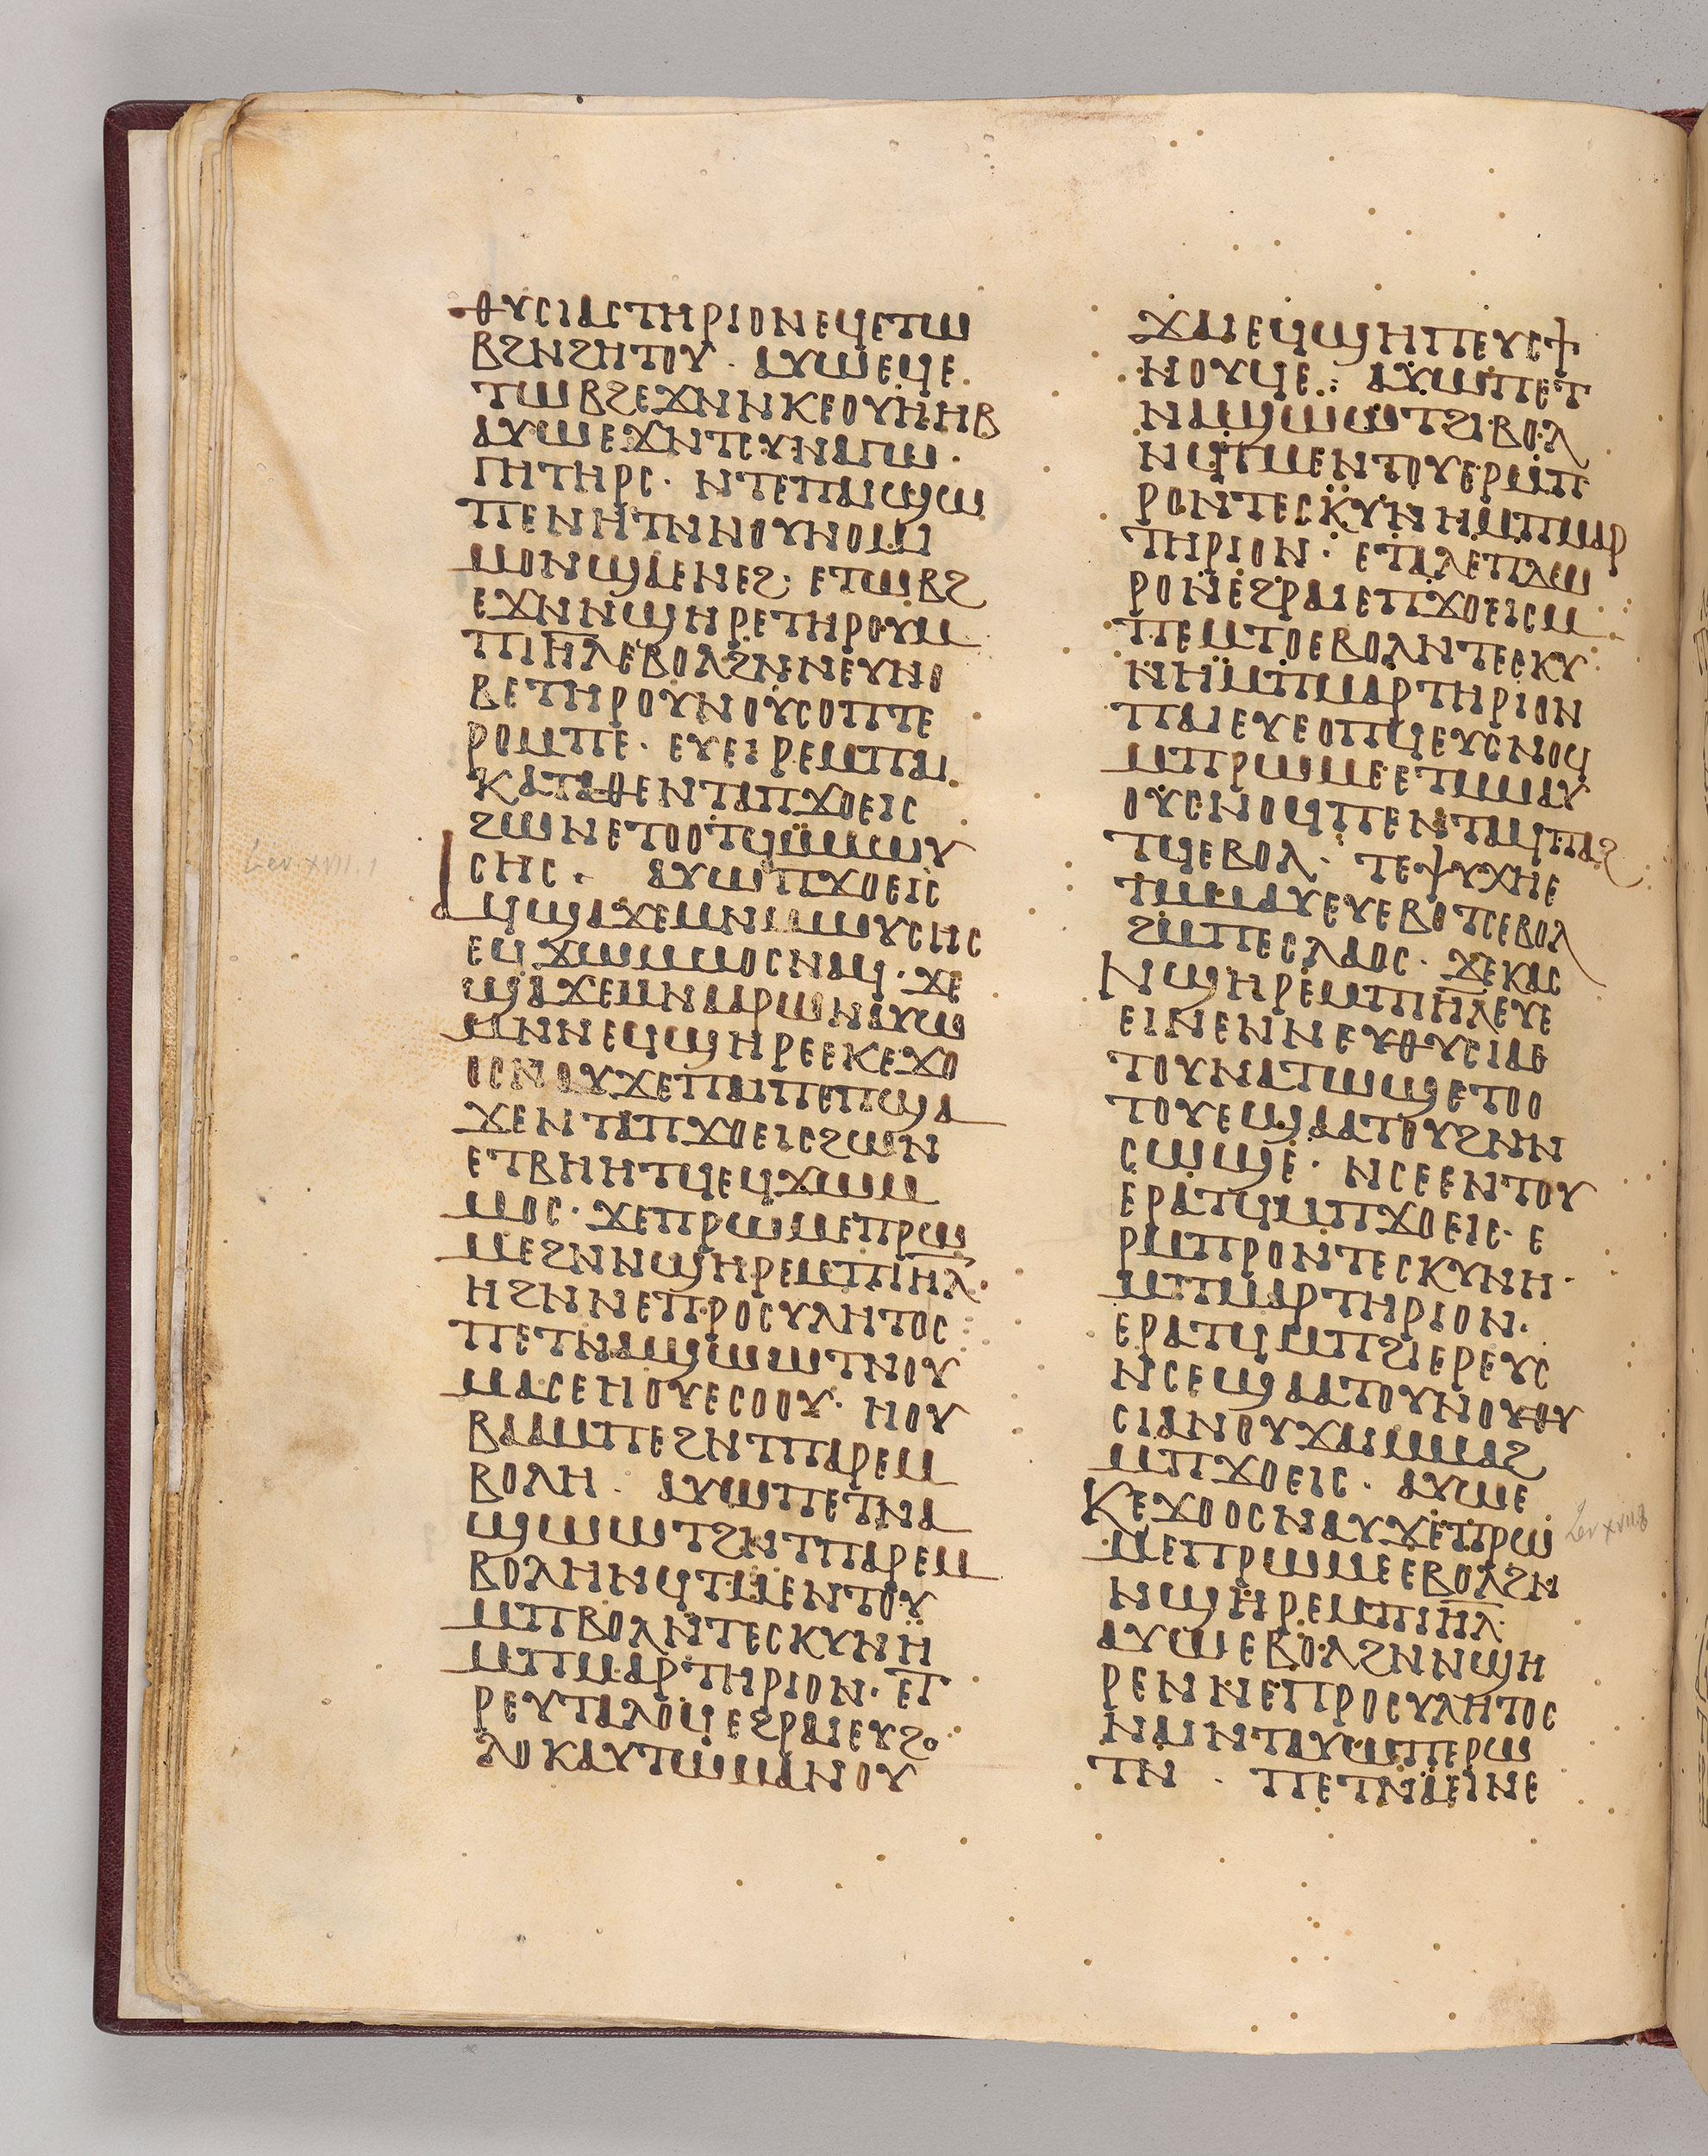 ⲑⲩⲥⲓⲁⲥⲧⲏⲣⲓⲟⲛⲉϥⲉⲧⲱ
ⲃϩⲛϩⲏⲧⲟⲩ · ⲁⲩⲱⲉϥⲉ
ⲧⲱⲃϩⲉϫⲛⲛⲕⲉⲟⲩⲏⲏⲃ
ⲁⲩⲱⲉϫⲛⲧⲥⲩⲛⲁⲅⲱ ·
ⲅⲏⲧⲏⲣⲥ · ⲛⲧⲉⲡⲁⲓϣⲱ
ⲡⲉⲛⲏⲧⲛⲛⲟⲩⲛⲟⲙ
ⲙⲟⲛϣⲁⲉⲛⲉϩ · ⲉⲧⲱⲃϩ
ⲉϫⲛⲛϣⲏⲣⲉⲧⲏⲣⲟⲩⲙ
ⲡⲓⲏⲗⲉⲃⲟⲗϩⲛⲛⲉⲩⲛⲟ
ⲃⲉⲧⲏⲣⲟⲩⲛⲟⲩⲥⲟⲡⲧⲉ
ⲣⲟⲙⲡⲉ · ⲉⲩⲉⲓⲣⲉⲙⲡⲁⲓ
ⲕⲁⲧⲁⲑⲉⲛⲧⲁⲡϫⲟⲉⲓⲥ
ϩⲱⲛⲉⲧⲟⲟⲧϥⲙⲙⲱⲩ
ⲥⲏⲥ · ⲁⲩⲱⲡϫⲟⲉⲓⲥ
ⲁϥϣⲁϫⲉⲙⲛⲙⲱⲩⲥⲏⲥ
ⲉϥϫⲱⲙⲙⲟⲥⲛⲁϥ · ϫⲉ
ϣⲁϫⲉⲙⲛⲁⲁⲣⲱⲛⲁⲩⲱ
ⲙⲛⲛⲉϥϣⲏⲣⲉⲉⲕⲉϫⲟ
ⲟⲥⲛⲟⲩϫⲉⲡⲁⲓⲡⲉⲡϣⲁ
ϫⲉⲛⲧⲁⲡϫⲟⲉⲓⲥϩⲱⲛ
ⲉⲧⲃⲏⲏⲧϥⲉϥϫⲱⲙ
ⲙⲟⲥ · ϫⲉⲡⲣⲱⲙⲉⲡⲣⲱ
ⲙⲉϩⲛⲛϣⲏⲣⲉⲙⲡⲓⲏⲗ ·
ⲏϩⲛⲛⲉⲡⲣⲟⲥⲩⲗⲏⲧⲟⲥ
ⲡⲉⲧⲛⲁϣⲱⲱⲧⲛⲟⲩ
ⲙⲁⲥⲉⲏⲟⲩⲉⲥⲟⲟⲩ · ⲏⲟⲩ
ⲃⲁⲁⲙⲡⲉϩⲛⲧⲡⲁⲣⲉⲙ
ⲃⲟⲗⲏ · ⲁⲩⲱⲡⲉⲧⲛⲁ
ϣⲱⲱⲧϩⲛⲧⲡⲁⲣⲉⲙ
ⲃⲟⲗⲏⲛϥⲧⲙⲉⲛⲧⲟⲩ
ⲙⲡⲃⲟⲗⲛⲧⲉⲥⲕⲩⲛⲏ
ⲙⲡⲙⲁⲣⲧⲏⲣⲓⲟⲛ · ⲉⲧ
ⲣⲉⲩⲧⲁⲗⲟϥⲉϩⲣⲁⲓⲉⲩϩⲟ
ⲗⲟⲕⲁⲩⲧⲱⲙⲁⲛⲟⲩ
ϫⲁⲓⲉϥϣⲏⲡⲉⲩⲥϯ
ⲛⲟⲩϥⲉ : ⲁⲩⲱⲡⲉⲧ
ⲛⲁϣⲱⲱⲧϩⲓⲃⲟⲗ
ⲛϥⲧⲙⲉⲛⲧⲟⲩⲉⲣⲙⲡ
ⲣⲟⲛⲧⲉⲥⲕⲩⲛⲏⲙⲡⲙⲁⲣ
ⲧⲏⲣⲓⲟⲛ · ⲉⲧⲁⲗⲉⲡⲇⲱ
ⲣⲟⲛⲉϩⲣⲁⲓⲉⲡϫⲟⲉⲓⲥⲙ
ⲡⲉⲙⲧⲟⲉⲃⲟⲗⲛⲧⲉⲥⲕⲩ
ⲛⲏⲙⲡⲙⲁⲣⲧⲏⲣⲓⲟⲛ
ⲡⲁⲓⲉⲩⲉⲟⲡϥⲉⲩⲥⲛⲟϥ
ⲙⲡⲣⲱⲙⲉⲉⲧⲙⲙⲁⲩ
ⲟⲩⲥⲛⲟϥⲡⲉⲛⲧⲁϥⲡⲁϩ
ⲧϥⲉⲃⲟⲗ · ⲧⲉⲯⲩⲭⲏⲉ
ⲧⲙⲙⲁⲩⲉⲩⲉⲃⲟⲧⲥⲉⲃⲟⲗ
ϩⲙⲡⲉⲥⲗⲁⲟⲥ · ϫⲉⲕⲁⲥ
ⲛϣⲏⲣⲉⲙⲡⲓⲏⲗⲉⲩⲉ
ⲉⲓⲛⲉⲛⲛⲉⲩⲑⲩⲥⲓⲁⲉ
ⲧⲟⲩⲛⲁⲧⲱϣⲉⲧⲟⲟ
ⲧⲟⲩⲉϣⲁⲁⲧⲟⲩϩⲛⲛ
ⲥⲱϣⲉ · ⲛⲥⲉⲉⲛⲧⲟⲩ
ⲉⲣⲁⲧϥⲙⲡϫⲟⲉⲓⲥ · ⲉ
ⲣⲙⲡⲣⲟⲛⲧⲉⲥⲕⲩⲛⲏ ·
ⲙⲡⲙⲁⲣⲧⲏⲣⲓⲟⲛ ·
ⲉⲣⲁⲧϥⲙⲡϩⲓⲉⲣⲉⲩⲥ
ⲛⲥⲉϣⲁⲁⲧⲟⲩⲛⲟⲩⲑⲩ
ⲥⲓⲁⲛⲟⲩϫⲁⲓⲙⲙⲁϩ
ⲙⲡϫⲟⲉⲓⲥ · ⲁⲩⲱⲉ
ⲕⲉϫⲟⲟⲥⲛⲁⲩϫⲉⲡⲣⲱ
ⲙⲉⲡⲣⲱⲙⲉⲉⲃⲟⲗϩⲛ
ⲛϣⲏⲣⲉⲙⲡⲓⲏⲗ
ⲁⲩⲱⲉⲃⲟⲗϩⲛⲛϣⲏ
ⲣⲉⲛⲛⲉⲡⲣⲟⲥⲩⲗⲏⲧⲟⲥ
ⲛⲁⲓⲛⲧⲁⲩϣⲡⲉⲣⲱ
ⲧⲛ · ⲡⲉⲧⲛⲁⲉⲓⲛⲉ
Lev XVII. 1
Lev XVII.8